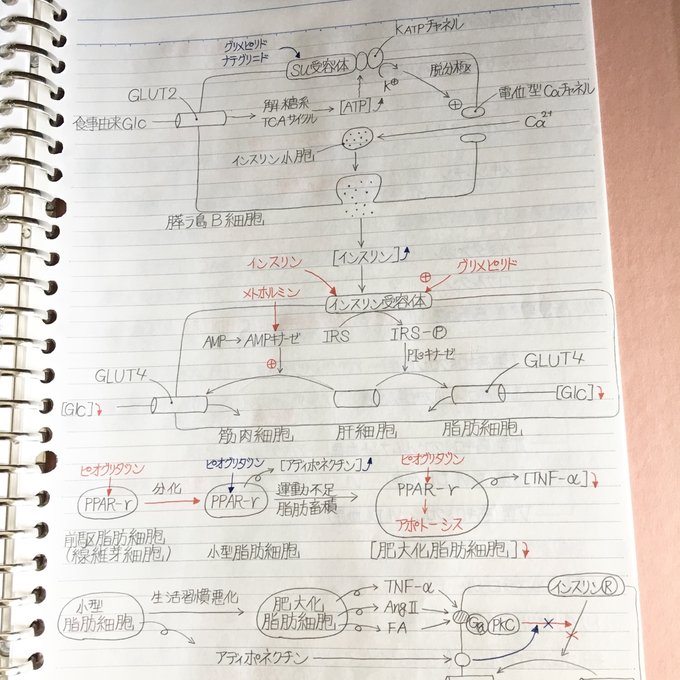 KATPチャネル
グリメピリド
ナテグリニド
SU受容体
K⊕
脱分極
GLUT2
解糖系
TCAサイクル
[ATP]
⊕
電位型Caチャネル
食事由来Glc
Ca²⁺
インスリン小胞
膵ラ島B細胞
[インスリン]
インスリン
⊕
グリメピリド
メトホルミン
インスリン受容体
AMP→AMPキナーゼ
IRS
IRS-Ⓟ
⊕
PI3キナーゼ
GLUT4
GLUT4
[Glc]
[Glc]
筋肉細胞
肝細胞
脂肪細胞
ピオグリタゾン
ピオグリタゾン
[アディポネクチン]
ピオグリタゾン
PPAR-γ
分化
PPAR-γ
運動不足
脂肪蓄積
PPAR-γ
[TNF-α]
アポトーシス
前駆脂肪細胞
(線維芽細胞)
小型脂肪細胞
[肥大化脂肪細胞]
小型
脂肪細胞
生活習慣悪化
肥大化
脂肪細胞
TNF-α
AngⅡ
FA
インスリンⓇ
PkC
アディポネクチン